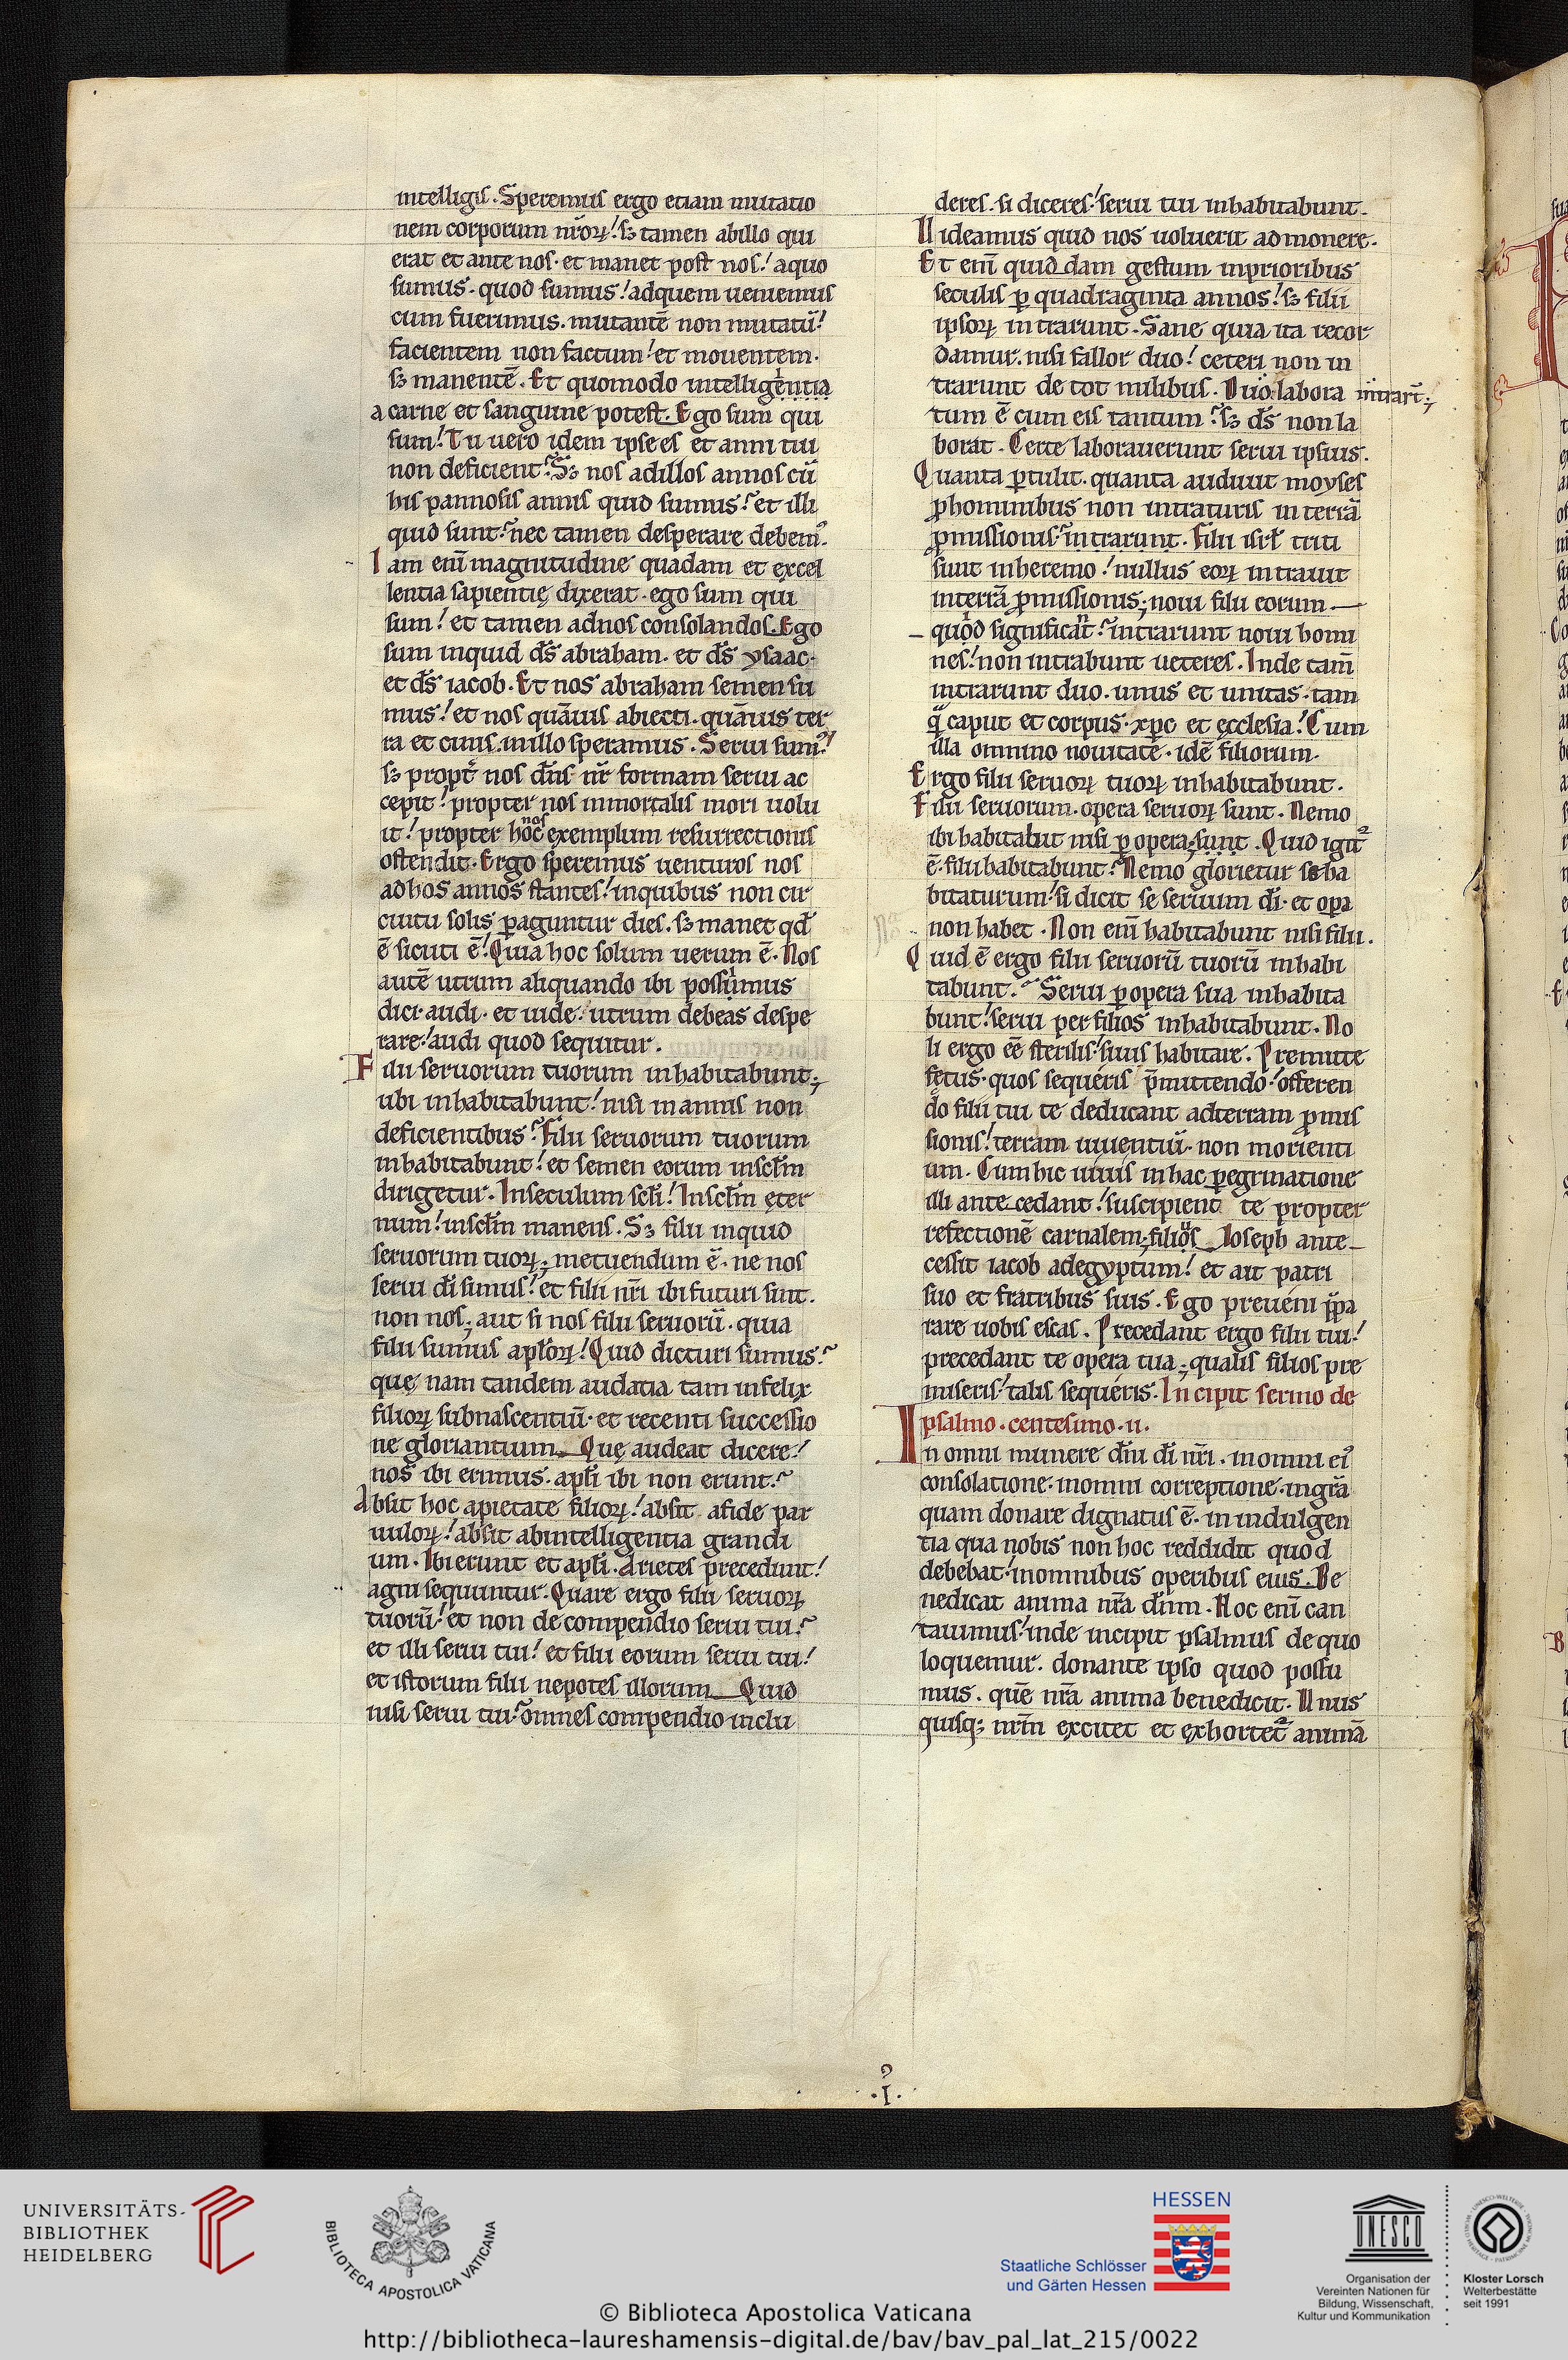 intelligis. Speremus ergo etiam mutatio
nem corporum nr̄oꝝ! sꝫ tamen abillo qui
erat et ante nos. et manet post nos! aquo
sumus. quod sumus! adquem ueniemus
cum fuerimus. mutantē non mutatū!
facientem non factum! et mouentem.
sꝫ manentē. Et quomodo intelligentia
a carne et sanguine potest. Ego sum qui
sum! Tu uero idem ipse es et anni tui
non deficient? Sꝫ nos adillos annos cū
his pannosis annis quid sumus? et illi
quid sunt? nec tamen desperare debem᾽.
Iam eni̅ magnitudine quadam et excel
lentia sapientię dixerat. ego sum qui
sum! et tamen adnos consolandos. Ego
sum inquid ds̄ abraham. et ds̄ ysaac.
et ds̄ iacob. Et nos abraham semen su
mus! et nos quāuis abiecti. quāuis ter
ra et cinis. inillo speramus. Serui sum᾽!
sꝫ propt̄ nos dn̄s nr̄ formam serui ac
cepit! propter nos inmortalis mori uolu
it! propter nos hoc exemplum resurrectionis
ostendit. Ergo speremus uenturos nos
adhos annos stantes! inquibus non cir
cuitu solis ꝑaguntur dies. sꝫ manet qd̄
ē sicuti ē! Quia hoc solum uerum ē. Nos
autē utrum aliquando ibi possimus
dici audi. et uide! utrum debeas despe
rare! audi quod sequitur.
Filii seruorum tuorum inhabitabunt;
ubi inhabitabunt! nisi in annis non
deficientibus? Filii seruorum tuorum
inhabitabunt! et semen eorum insclm̄
dirigetur. Inseculum scl̄i! Insclm̄ ęter
num! insclm̄ manens. Sꝫ filii inquid
seruorum tuoꝝ; metuendum ē. ne nos
serui dī simus! et filii nr̄i ibi futuri sint.
non nos; aut si nos filii seruorū. quia
filii sumus apl̄oꝝ! Quid dicturi sumus?
quę nam tandem audatia tam infelix
filioꝝ subnascentiū. et recenti successio
ne gloriantium. Quę audeat dicere!
nos ibi erimus. apl̄i ibi non erunt?
Absit hoc apietate filioꝝ! absit afide par
uuloꝝ! absit abintelligentia grandi
um. Ibi erunt et apl̄i. Arietes precedunt!
agni sequuntur. Quare ergo filii seruoꝝ
tuorū! et non de compendio serui tui?
et illi serui tui! et filii eorum serui tui!
et istorum filii nepotes illorum. Quid
nisi serui tui? omnes compendio inclu
deres. si diceres! serui tui inhabitabunt.
Uideamus quid nos uoluerit admonere.
Et eni̅ quid dam gestum inprioribus
seculis ꝑ quadraginta annos! sꝫ filii
ipsoꝝ intrarunt. Sane quia ita recor
damur. nisi fallor duo! ceteri non in
trarunt de tot milibus. Duo intrarn̄t;
labora
tum ē cum eis tantum? sꝫ ds̄ non la
borat. Certe laborauerunt serui ipsius.
Quanta ꝑtulit. quanta audiuit moyses
ꝓhominibus non intraturis interrā
ꝓmissionis? intrarunt. Filii isrl̄ triti
sunt inheremo! nullus eoꝝ intrauit
interrā ꝓmissionis; noui filii eorum
quod significat? intrarunt noui homi
nes! non intrabunt ueteres. Inde tam̄
intrarunt duo. unus et unitas. tam
q̄ caput et corpus. xpc et ęcclesia! Cum
illa omnino nouitate. idē filiorum.
Ergo filii seruoꝝ tuoꝝ inhabitabunt.
Filii seruorum. opera seruoꝝ sunt. Nemo
ibi habitabit nisi ꝑ opera sunt. Quid igit᾽
ē. filii habitabunt? Nemo glorietur se ha
bitaturum! si dicit se seruum dī. et opa
non habet. Non eni̅ habitabunt nisi filii.
Quid ē ergo filii seruorū tuorū inhabi
tabunt? Serui ꝑ opera sua inhabita
bunt! serui per filios inhabitabunt. No
li ergo eē sterilis! siuis habitare. Premitte
fętus. quos sequeris p̄mittendo! offeren
do filii tui te deducant adterram ꝓmis
sionis! terram uiuentiū. non morienti
um. Cum hic uiuis inhac ꝑegrinatione
illi antecedant! suscipient te propter
refectionē carnalem; filios Ioseph ante
cessit iacob adegyptum! et ait patri
suo et fratribus suis. Ego preueni p̄pa
rare uobis escas. Precedant ergo filii tui!
precedant te opera tua; qualis filios pre
miseris! talis sequeris. Incipit sermo de
psalmo. centesimo. ii.
In omni munere dn̄i dī nr̄i. inomni ei᾽
consolatione. inomni correptione. ingrā
quam donare dignatus ē. in indulgen
tia qua nobis non hoc reddidit quod
debebat! inomnibus operibus eius. Be
nedicat anima nr̄a dn̄m. Hoc eni̅ can
tauimus! inde incipit psalmus de quo
loquemur. donante ipso quod possu
mus. quē nr̄a anima benedicit. Unus
quisqꝫ nrm̄ excitet et exhortet᾽ animā
.I.
UNIVERSITÄTS-
BIBLIOTHEK
HEIDELBERG
BIBLIOTECA APOSTOLICA VATICANA
HESSEN
Staatliche Schlösser
und Gärten Hessen
UNESCO
Organisation der
Vereinten Nationen für
Bildung, Wissenschaft,
Kultur und Kommunikation
Kloster Lorsch
Welterbestätte
seit 1991
© Biblioteca Apostolica Vaticana
http://bibliotheca-laureshamensis-digital.de/bav/bav_pal_lat_215/0022